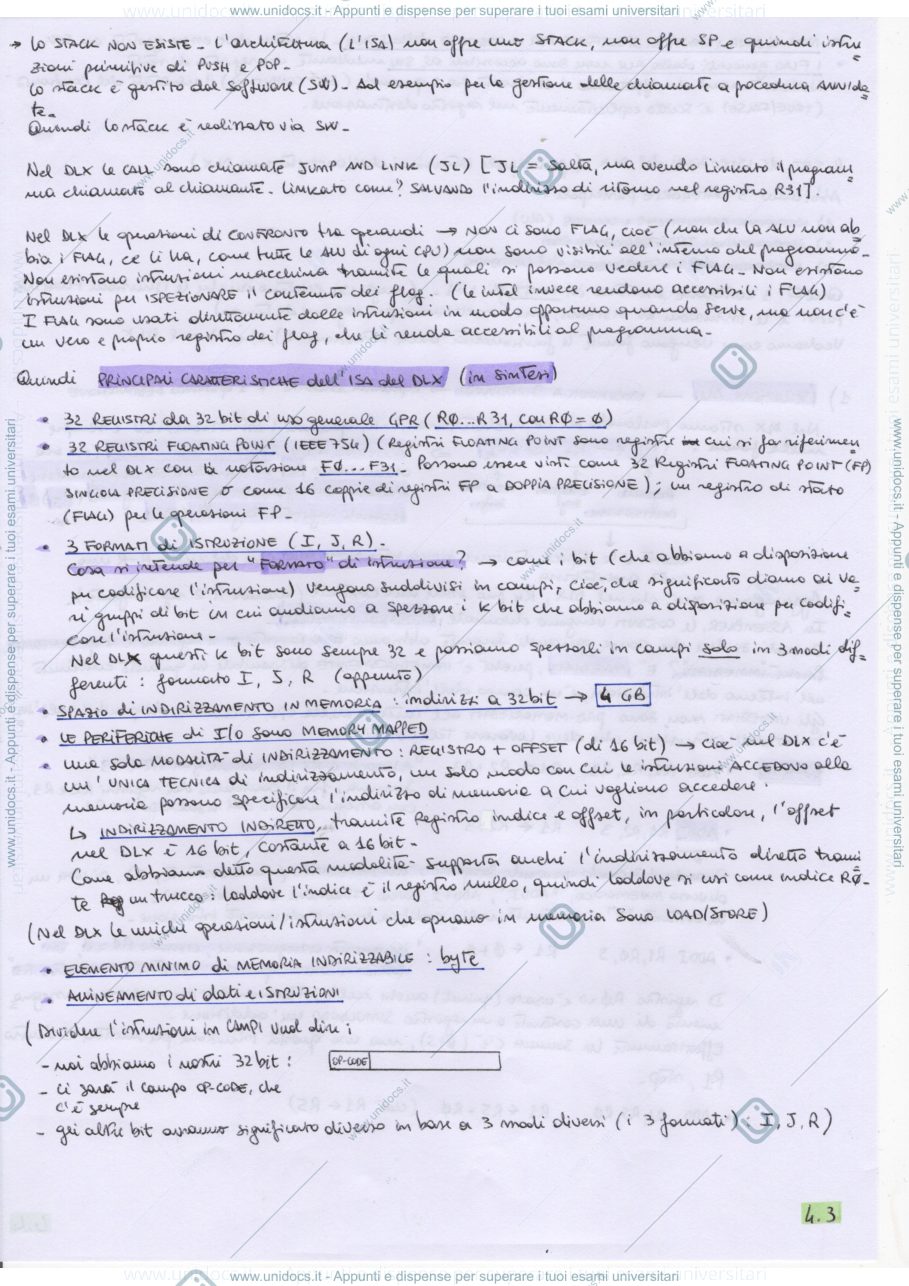 www.unidocs.it - Appunti e dispense per superare i tuoi esami universitari
→ LO STACK NON ESISTE - L'architettura (L'ISA) non offre uno STACK, non offre SP e quindi istru
zioni primitive di PUSH e POP.
Lo stack è gestito dal Software (SW) - Ad esempio per la gestione delle chiamate a procedura annida
te.
Quindi lo stack è realizzato via SW -
Nel DLX le CALL sono chiamate JUMP AND LINK (JL) [JL = Salta, ma avendo Linkato il program
ma chiamato al chiamante - Linkato come? SALVANDO l'indirizzo di ritorno nel registro R31].
Nel DLX le operazioni di CONFRONTO tra operandi → NON ci sono FLAG, cioè (non che la ALU non ab
bia i FLAG, ce li ha, come tutte le ALU di ogni CPU) non sono visibili all'interno del programma -
Non esistono istruzioni macchina tramite le quali si possono vedere i FLAG - Non esistono
istruzioni per ISPEZIONARE il contenuto dei flag. (le intel invece rendono accessibili i FLAG)
I FLAG sono usati direttamente dalle istruzioni in modo opportuno quando serve, ma non c'è
un vero e proprio registro dei flag, che li renda accessibili al programma -
Quindi PRINCIPALI CARATTERISTICHE dell'ISA del DLX (in sintesi)
• 32 REGISTRI da 32 bit di uso generale GPR (R0...R31, con R0 = 0)
• 32 REGISTRI FLOATING POINT (IEEE 754) (Registri FLOATING POINT sono registri cui si fa riferimen
to nel DLX con la notazione F0...F31 - Possono essere visti come 32 Registri FLOATING POINT (FP)
SINGOLA PRECISIONE o come 16 coppie di registri FP a DOPPIA PRECISIONE); un registro di stato
(FLAG) per le operazioni FP -
• 3 FORMATI di ISTRUZIONE (I, J, R) -
Cosa si intende per "FORMATO" di istruzione? → come i bit (che abbiamo a disposizione
per codificare l'istruzione) vengono suddivisi in campi, cioè, che significato diamo ai va
ri gruppi di bit in cui andiamo a spezzare i k bit che abbiamo a disposizione per codifi-
care l'istruzione -
Nel DLX questi k bit sono sempre 32 e possiamo spezzarli in campi solo in 3 modi dif-
ferenti : formato I, J, R (appunto)
• SPAZIO di INDIRIZZAMENTO IN MEMORIA : indirizzi a 32 bit → 4 GB
• LE PERIFERICHE di I/O sono MEMORY MAPPED
• una sola MODALITÀ di INDIRIZZAMENTO : REGISTRO + OFFSET (di 16 bit) → cioè nel DLX c'è
un' UNICA TECNICA di indirizzamento, un solo modo con cui le istruzioni ACCEDONO alla
memoria possono specificare l'indirizzo di memoria a cui vogliono accedere :
↳ INDIRIZZAMENTO INDIRETTO, tramite Registro indice e offset, in particolare, l'offset
nel DLX è 16 bit, costante a 16 bit -
Come abbiamo detto questa modalità supporta anche l'indirizzamento diretto trami
te un trucco : laddove l'indice è il registro nullo, quindi laddove si usi come indice R0 -
(Nel DLX le uniche operazioni/istruzioni che operano in memoria sono LOAD/STORE)
• ELEMENTO MINIMO di MEMORIA INDIRIZZABILE : byte
• ALLINEAMENTO di dati e ISTRUZIONI
(Dividere l'istruzione in CAMPI vuol dire :
- noi abbiamo i nostri 32 bit : OP-CODE
- ci sarà il campo OP-CODE, che
c'è sempre
- gli altri bit avranno significato diverso in base a 3 modi diversi (i 3 formati) : I, J, R)
4.3
www.unidocs.it - Appunti e dispense per superare i tuoi esami universitari